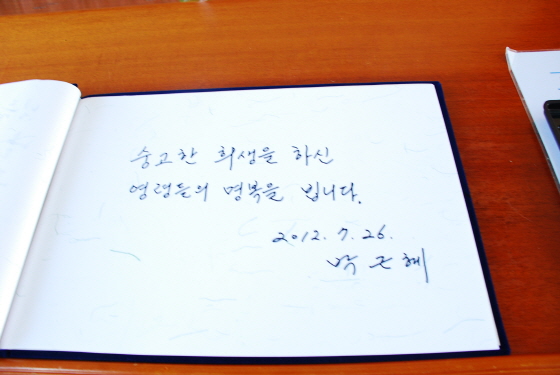 숭고한 희생을 하신
영령들의 명복을 빕니다.
2012. 7. 26.
박근혜